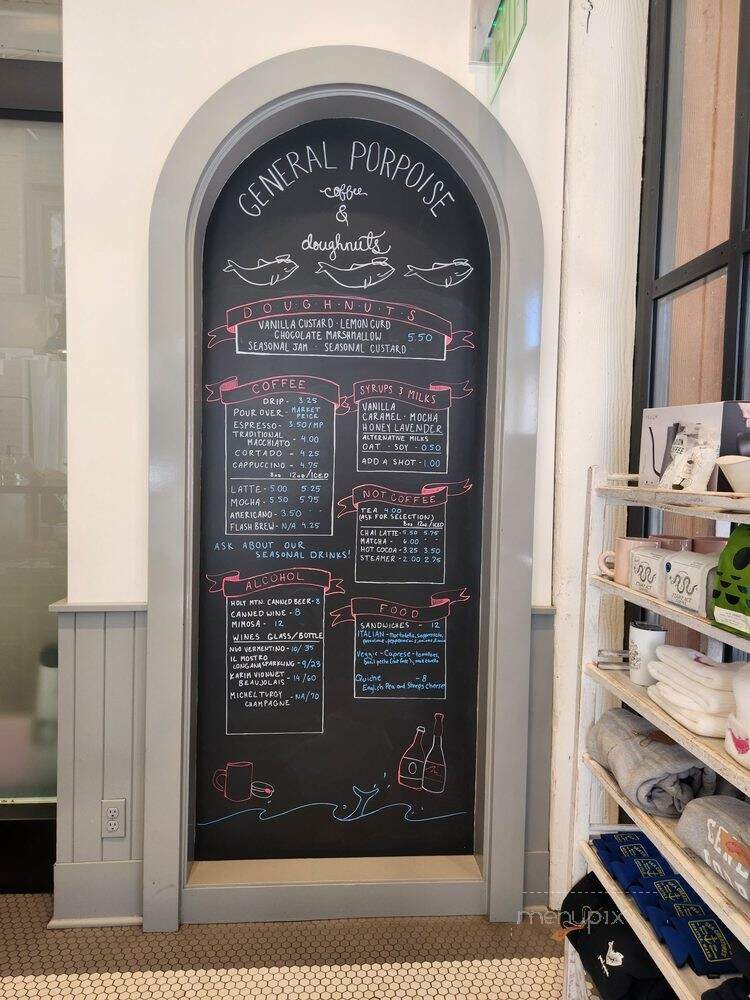 GENERAL PORPOISE
coffee
&
doughnuts
DOUGH·N·U·T·S
VANILLA CUSTARD · LEMON CURD
CHOCOLATE MARSHMALLOW 5.50
SEASONAL JAM · SEASONAL CUSTARD
COFFEE
DRIP - 3.25
POUR OVER - MARKET PRICE
ESPRESSO - 3.50/MP
TRADITIONAL
MACCHIATO - 4.00
CORTADO - 4.25
CAPPUCCINO - 4.75
8oz 12oz/ICED
LATTE - 5.00 5.25
MOCHA - 5.50 5.75
AMERICANO - 3.50
FLASH BREW - N/A 4.25
ASK ABOUT OUR
SEASONAL DRINKS!
SYRUPS & MILKS
VANILLA
CARAMEL · MOCHA
HONEY LAVENDER
ALTERNATIVE MILKS
OAT · SOY - 0.50
ADD A SHOT - 1.00
NOT COFFEE
TEA 4.00
(ASK FOR SELECTION)
8oz 12oz/ICED
CHAI LATTE - 5.50 5.75
MATCHA - 6.00
HOT COCOA - 3.25 3.50
STEAMER - 2.00 2.75
ALCOHOL
HOLY MTN. CANNED BEER - 8
CANNED WINE - 8
MIMOSA - 12
WINES GLASS/BOTTLE
VERMENTINO - 10/35
IL MOSTRO
SPARKLING - 9/23
KARIM VIONNET
BEAUJOLAIS - 14/60
MICHEL TURGY - NA/70
CHAMPAGNE
FOOD
SANDWICHES - 12
ITALIAN - Mortadella, Soppressata,
provolone, pepperoncini, onions
Veggie - Caprese - tomatoes,
basil pesto (nut free), mozzarella
Quiche - 8
English Pea and Sheeps cheese
menupix